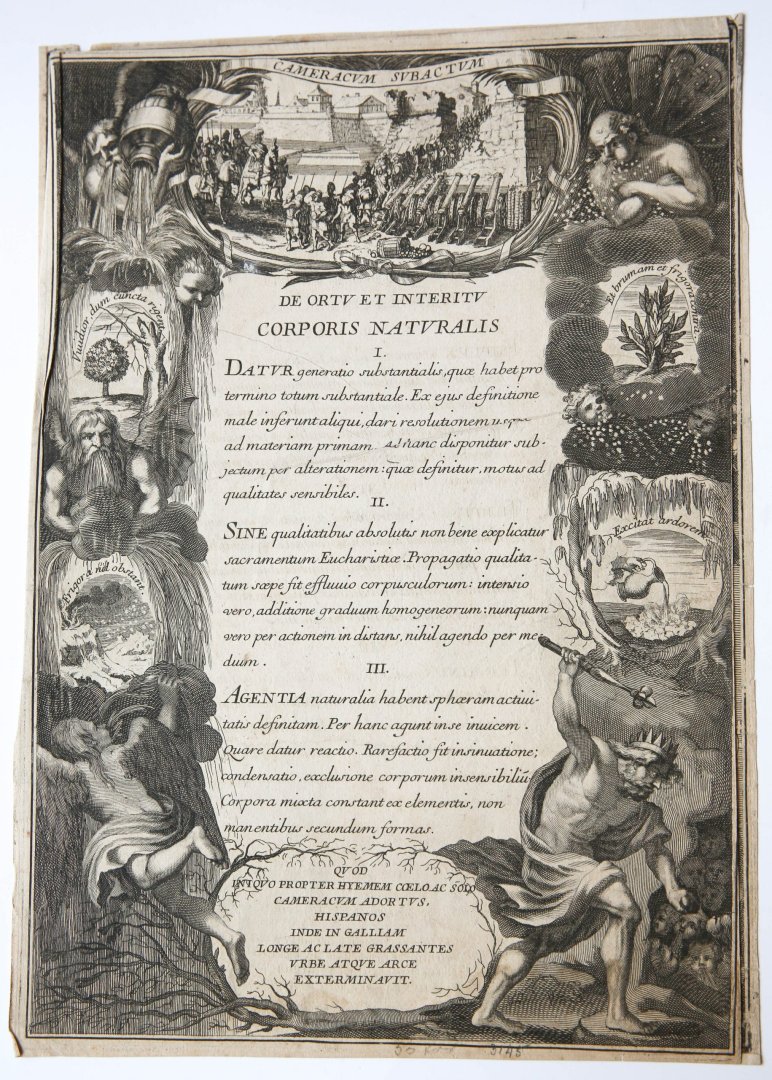 CAMERACVM SVBACTVM
Viuidior dum cuncta rigent.
Et brumam et frigora
frigora nil obstant.
Excitat ardorem
DE ORTV ET INTERITV
CORPORIS NATVRALIS
I.
DATVR generatio substantialis, quæ habet pro
termino totum substantiale. Ex ejus definitione
male inferunt aliqui, dari resolutionem
ad materiam primam. Ad hanc disponitur sub-
jectum per alterationem: quæ definitur, motus ad
qualitates sensibiles.
II.
SINE qualitatibus absolutis non bene explicatur
sacramentum Eucharistiæ. Propagatio qualita-
tum sæpe fit effluuio corpusculorum: intensio
vero, additione graduum homogeneorum: nunquam
vero per actionem in distans, nihil agendo per me
dium.
III.
AGENTIA naturalia habent sphæram actiui-
tatis definitam. Per hanc agunt in se inuicem.
Quare datur reactio. Rarefactio fit insinuatione;
condensatio, exclusione corporum insensibiliū.
Corpora mixta constant ex elementis, non
manentibus secundum formas.
QVOD
INIQVO PROPTER HYEMEM COELO AC SOLO
CAMERACVM ADORTVS,
HISPANOS
INDE IN GALLIAM
LONGE AC LATE GRASSANTES
VRBE ATQVE ARCE
EXTERMINAVIT.
3148